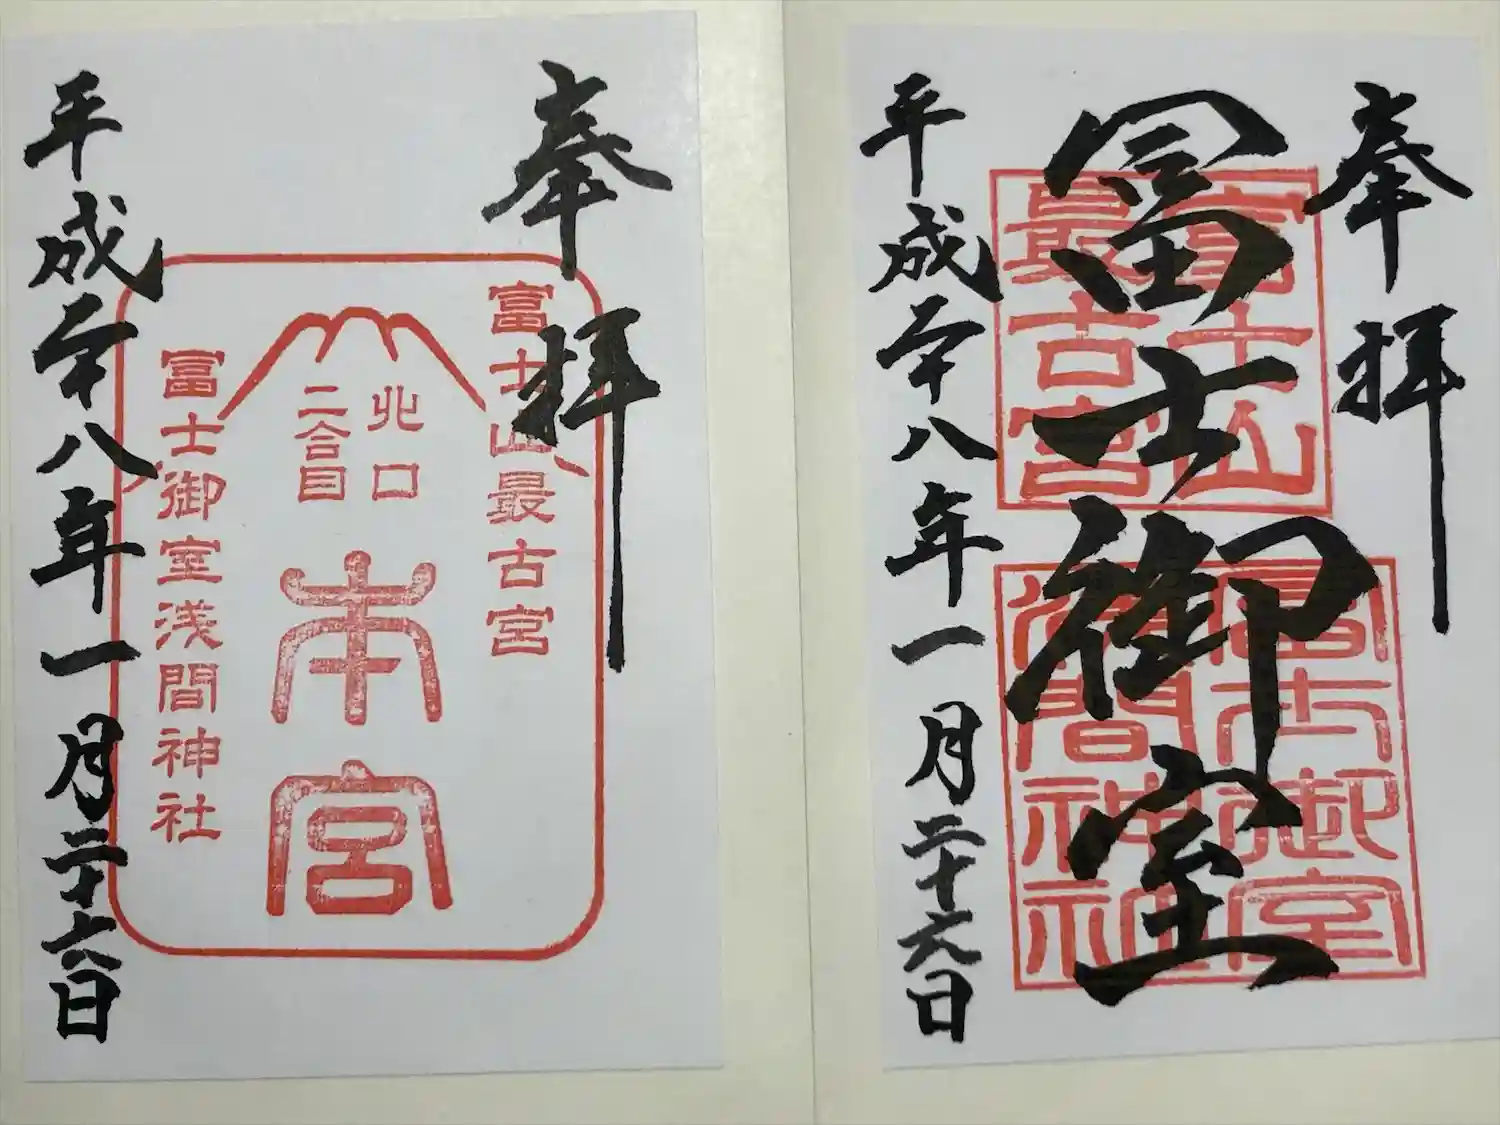 奉拝
冨士御室
富士山
最古宮
冨士御室
浅間神社
平成二十八年一月二十六日
奉拝
富士山最古宮
北口
二合目
本宮
富士御室浅間神社
平成二十八年一月二十六日